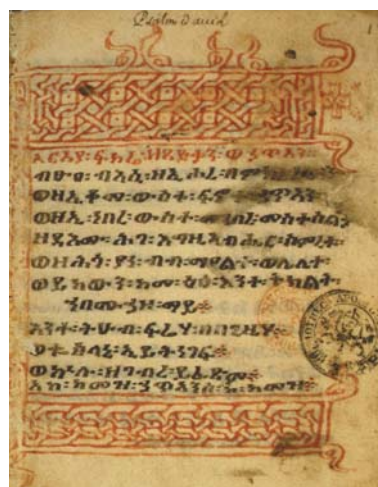 1
ፍካሬ፡ዘጻድቃን፡ወኃጥአን፡
ብፁዕ፡ብእሲ፡ዘኢሖረ፡በምክረ፡
ወዘኢቆመ፡ውስተ፡ፍኖተ፡ኃጥአን
ወዘኢነበረ፡ውስተ፡መንበረ፡መስተሳልቃን
ዘዳእሙ፡ሕገ፡እግዚአብሔር፡ሥምረቱ
ወዘሕጎ፡ያነብብ፡መዓልተ፡ወሌሊተ
ወይከውን፡ከመ፡ዕፅ፡እንተ፡ትክልት
ኀበ፡ሙኃዘ፡ማይ።
እንተ፡ትሁብ፡ፍሬሃ፡በበጊዜሃ
ኢይትነገፍ
ወኵሎ፡ዘገብረ፡ይፌጽም
አኮ፡ከመዝ፡ኃጥአንሰ፡አኮ፡ከመዝ